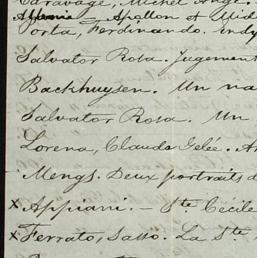 Caravage, Michel Ange.
Apollon et Mid
Porta, Ferdinando. Endy
Salvator Rosa. Jugement
Backhuysen. Un na
Salvator Rosa. Un
Lorena, Claudo Gelée. A
Mengs. Deux portraits d
x Appiani. — Ste. Cécile
x Ferrato, Sasso. La Ste.